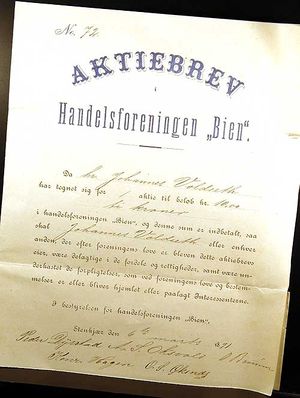 No. 72.
AKTIEBREV
i
Handelsforeningen „Bien".
Da hr. Johannes Voldseth
har tegnet sig for aktie til beløb kr. 10.00
ti kroner
i handelsforeningen „Bien", og denne sum er indbetalt, saa
skal Johannes Voldseth eller enhver
anden, der efter foreningens love er bleven dette aktiebrevs
eier, være delagtige i de fordele og rettigheder, samt være un-
derkastet de forpligtelser, som ved foreningens love og bestem-
melser er eller bliver hjemlet eller paalagt Interessenterne.
I bestyrelsen for handelsforeningen „Bien".
Stenkjær den 6te marts
Peder